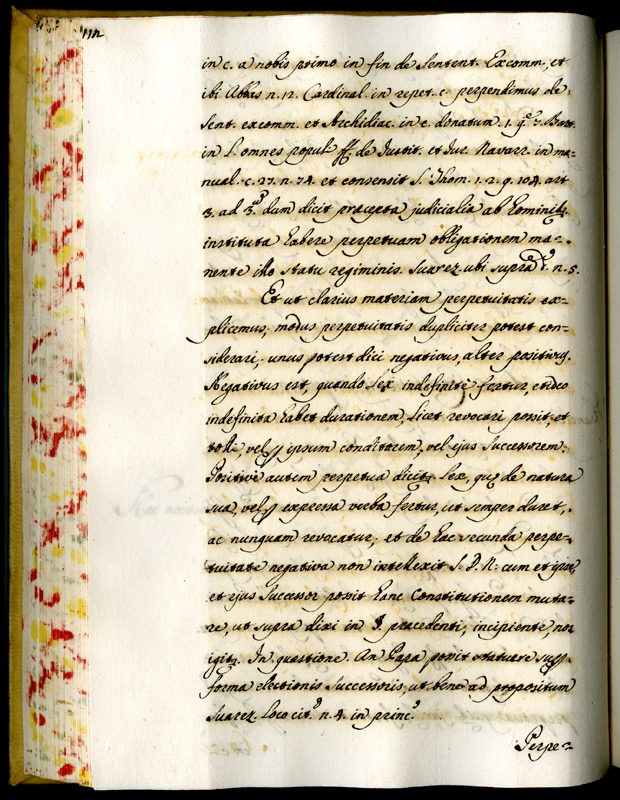 112
in c. a nobis primo in fin de Sentent. Excomm., et
ibi Abbas n. 12. Cardinal. in repet. c. perpendimus de
Sent. excomm. et Archidiac. in c. donatum 1. q. 7. Bart.
in l. omnes popul ff. de Iustit. et Iur. Navarr. in ma=
nual. c. 27. n. 74. et consensit S. Thom. 1. 2. q. 104. art
3. ad 3. dum dicit præcepta judicialia ab hominib.
instituta habere perpetuam obligationem ma=
nente illo statu regiminis. Suarez ubi supra n. 5.
Et ut clarius materiam perpetuitatis ex=
plicemus; modus perpetuitatis dupliciter potest con=
siderari; unus potest dici negativus, alter positivus.
Negativus est, quando Lex indefinitè fertur, et ideo
indefinita habet durationem, licet revocari possit, et
tolli, vel ipsum conditorem, vel ejus Successorem.
Positivè autem perpetua dicitr Lex, quę de natura
sua, vel expressa verba fertur, ut semper duret,
ac nunquam revocatur; et de hac secunda perpe=
tuitate negativa non intellexit S. D. N. cum et ipse,
et ejus Successor possit hanc Constitutionem muta=
re, ut supra dixi in §. præcedenti, incipiente non
igitr. In quæstione. An Papa possit statuere
forma electionis Successoris, ut bene ad propositum
Suarez. Loco cit.º n. 4. in princ.º
Perpe=